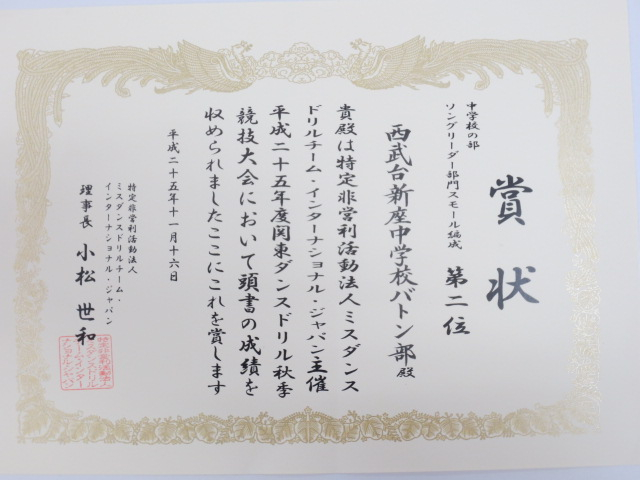 賞状
中学校の部
ソングリーダー部門スモール編成 第二位
西武台新座中学校バトン部殿
貴殿は特定非営利活動法人ミスダンス
ドリルチーム・インターナショナル・ジャパン主催
平成二十五年度関東ダンスドリル秋季
競技大会において頭書の成績を
収められましたここにこれを賞します
平成二十五年十一月十六日
特定非営利活動法人
ミスダンスドリルチーム・
インターナショナル・ジャパン
理事長 小松世和
特定非営利活動法人
ミスダンスドリル
チームインター
ナショナルジャパン